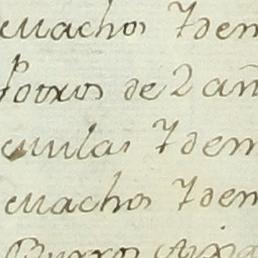 machos 7 dem
Potros de 2 añ
mulas 7 dem
machos 7 dem
Burros